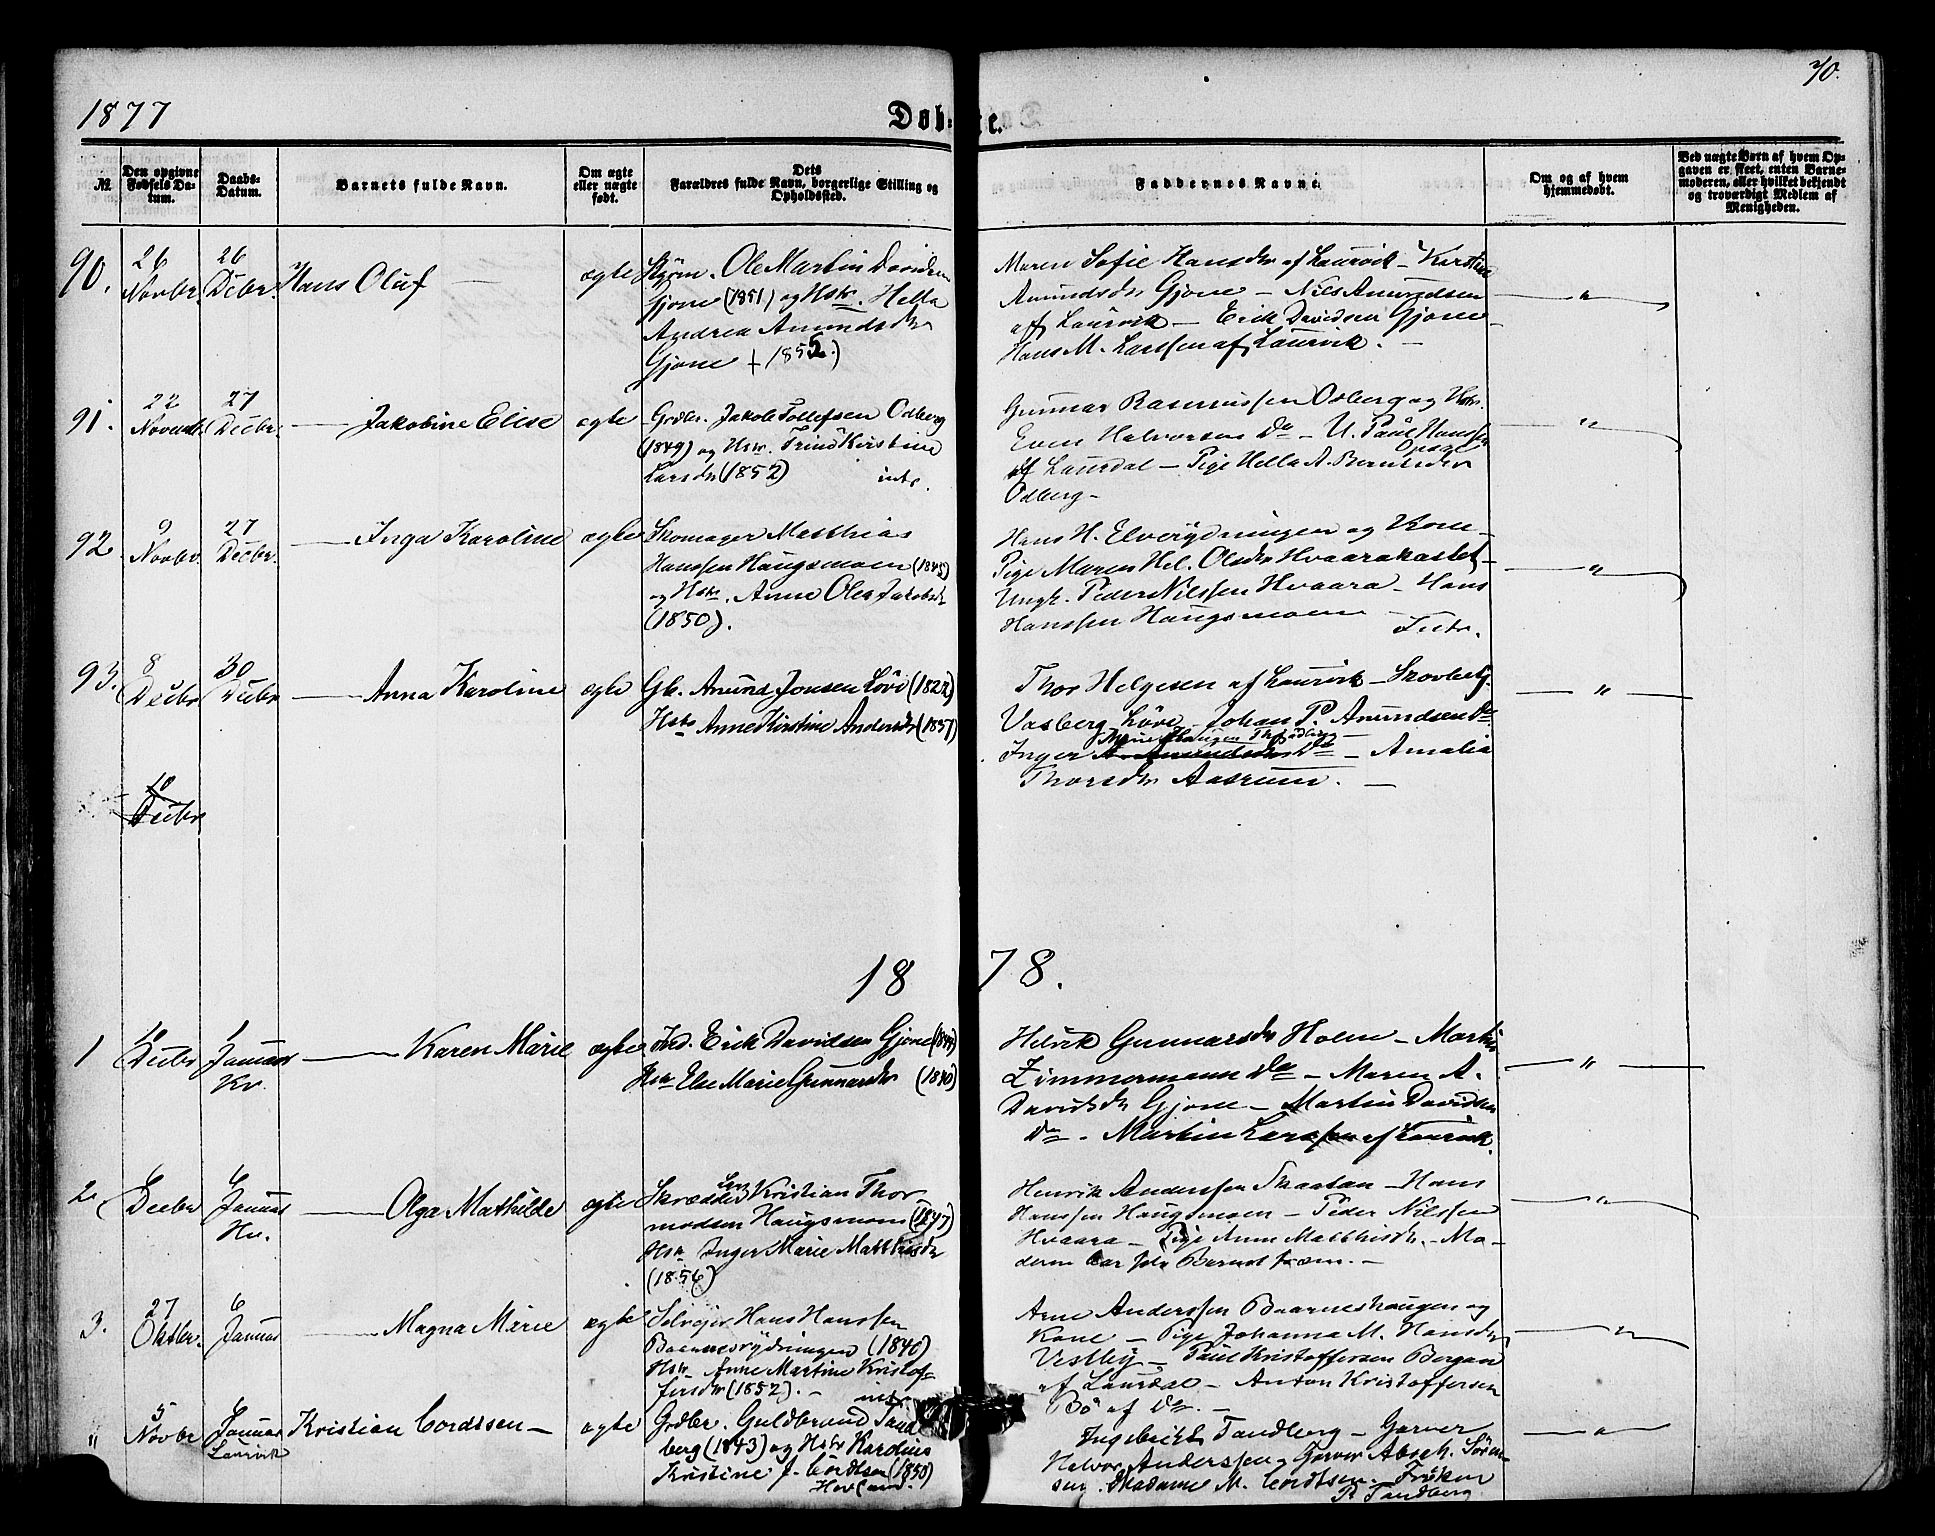 1877
Døbte.
70.
№
Den opgivne Fødsels Datum.
Daabs-Datum.
Barnets fulde Navn.
Om ægte eller uægte født.
Dets Forældres fulde Navn, borgerlige Stilling og Opholdssted.
Faddernes Navne.
Om og af hvem hjemmedøbt.
Ved uægte Børn af hvem Opgaven er skeet, enten Barnemoderen, eller hvilket bekjendt og troværdigt Medlem af Menigheden.
90.
26 Novbr.
26 Decbr.
Hans Oluf
ægte
Ole Martin Davidsen
Gjone (1851) og Hstr. Hella
Andrea Amundsdr
Gjone + 1855.)
Maren Sofie Hansdr af Laurvik - Kirstine
Amundsdr Gjone - Nils Amundsen
af Laurvik - Erik Davidsen Gjone
Hans M. Larssen af Laurvik. -
"
91.
22 Novembr.
27 Decbr.
Jakobine Elise
ægte
Grdbr. Jakob Tollefsen Odberg
(1849) og Hstr. Trine Kirstine
Larsdr (1852) intr.
Gunnar Rasmussen Odberg og Hstr.
Even Halvorsen Do - U. Paul Hanssen
Opsal
af Laurdal - Pige Hella A. Berntsdr
Odberg -
"
92.
9 Novbr.
27 Decbr.
Inga Karoline
ægte
Skomager Matthias
Hanssen Haugsmoen (1845)
og Hstr. Anne Olea Jakobsdr
(1850).
Hans H. Elverydningen og Kone -
Pige Maren Hel. Olsdr Hvaarakastet -
Ungk. Peder Nilssen Hvaara - Hans
Hanssen Haugsmoen -
Intr.
"
93.
8 Decbr
30 Decbr
Anna Karoline
ægte
Gb. Amund Jonsen Løvi (1822)
Hstr Anne Kirstine Andersdr (1837)
Thor Helgesen af Laurvik - Skovbetj.
Vasberg Løve - Johan P. Amundsen Do
Inger Do - Amalia
Thorsdr Aasrum. -
"
10
Decbr
1878.
1
10 Decbr
1 Januar
Kv.
Karen Marie
ægte
Ind. Erik Davidsen Gjone (1844)
Hstr Else Marie Gunnarsdr (1840)
Helvik Gunnarsdr Holm - Martin
Zimmermann Do - Maren A.
Davidsdr Gjone - Martin Davidsen
Do - Martin Larssen af Laurvik.
"
2
6 Decbr
6 Januar
Hv.
Olga Mathilde
ægte
Skrædder Kristian Thor
modsen Haugsmoen (1847)
Hstr Inger Marie Matthisdr
(1856)
Henrik Anderssen Skaatan - Hans
Hanssen Haugsmoen - Peder Nilssen
Hvaara - Pige Anne Matthisdr. - Mo-
deren bar selv Barnet frem. -
"
3.
27 Oktbr.
6 Januar
Magna Marie
ægte
Selvejer Hans Hanssen
Baarnesrydningen (1840)
Hstr. Anne Martine Kristof-
fersdr (1852). - intr.
Arne Anderssen Baarneshaugen og
Kone - Pige Johanna M. Hansdr
Vestby - Paul Kristoffersen Bergan
af Laurdal - Anton Kristoffersen
Bö af Do. -
"
"
5 Novbr
Januar
Laurvik
Kristian Cordtsen -
ægte
Grdbr. Guldbrand Tand
berg (1843) og Hstr Karoline
Kristine J. Cordtsen (1850)
Hovland.
Ingebrikt Tandberg - Garver
Halvor Anderssen, Garver Abrah. Sören-
sen. Madame M. Cordtsen - Frøken
P. Tandberg
"